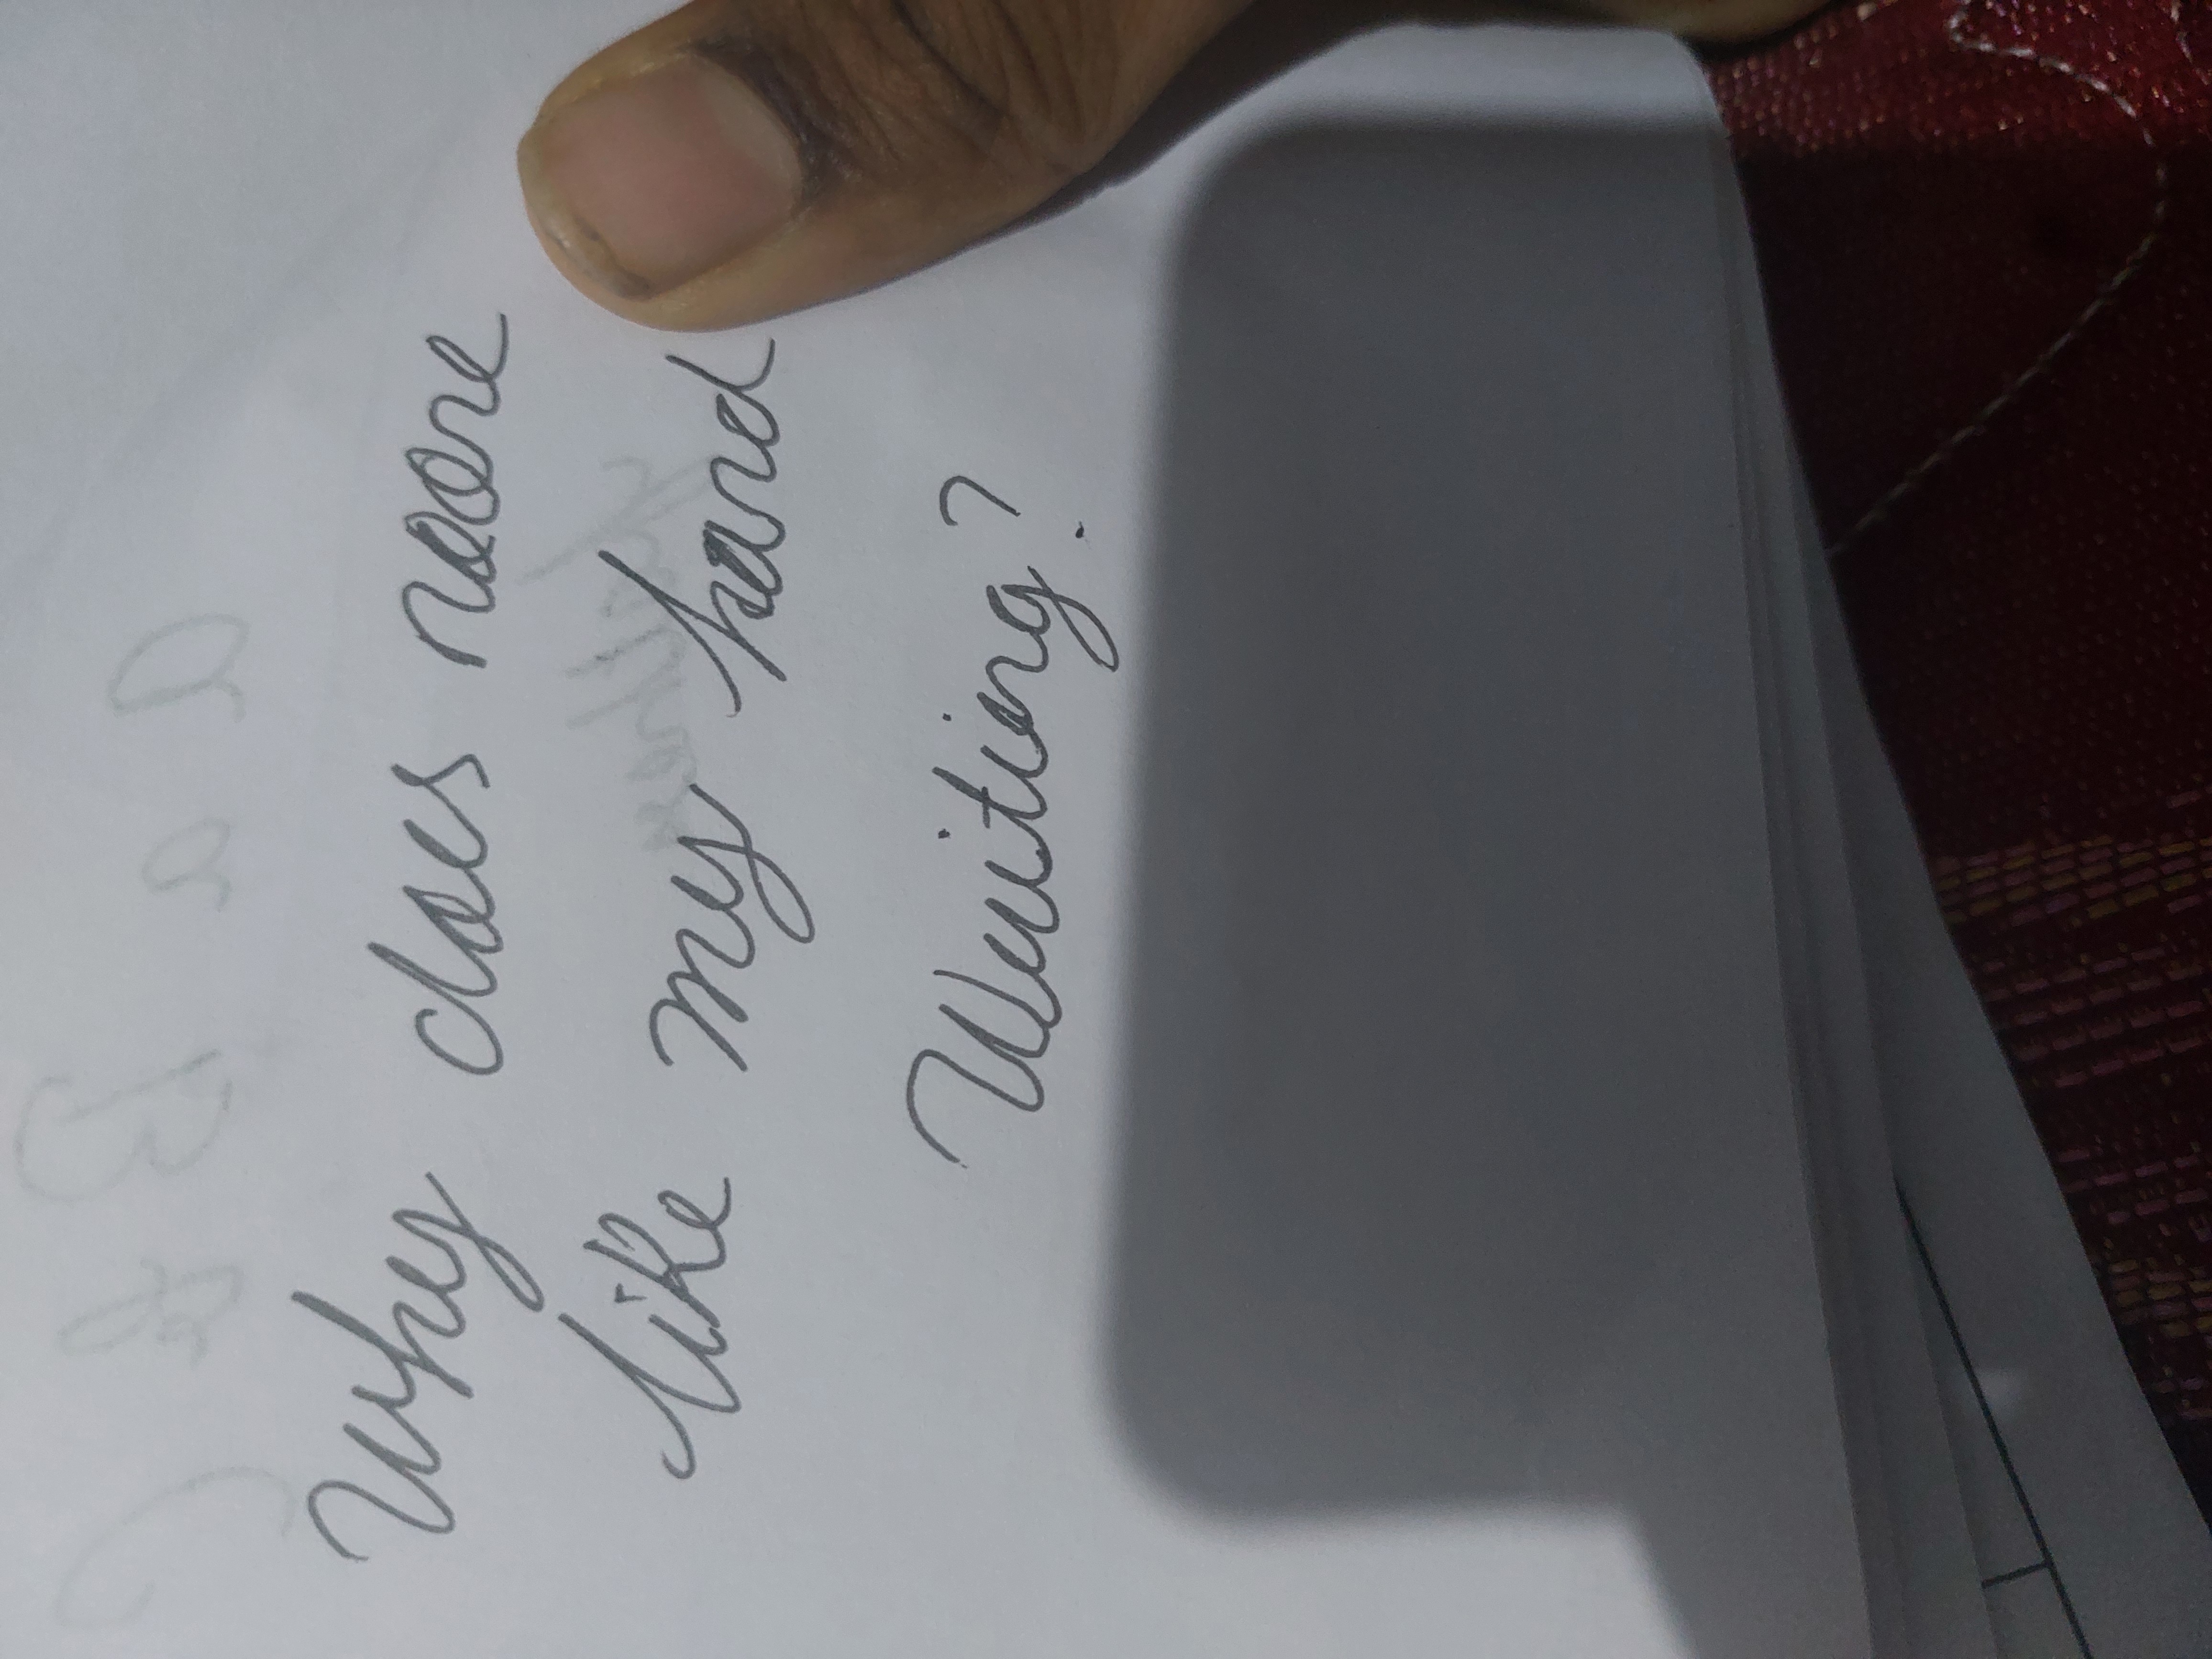 Why does noone
like my hand
Writing?